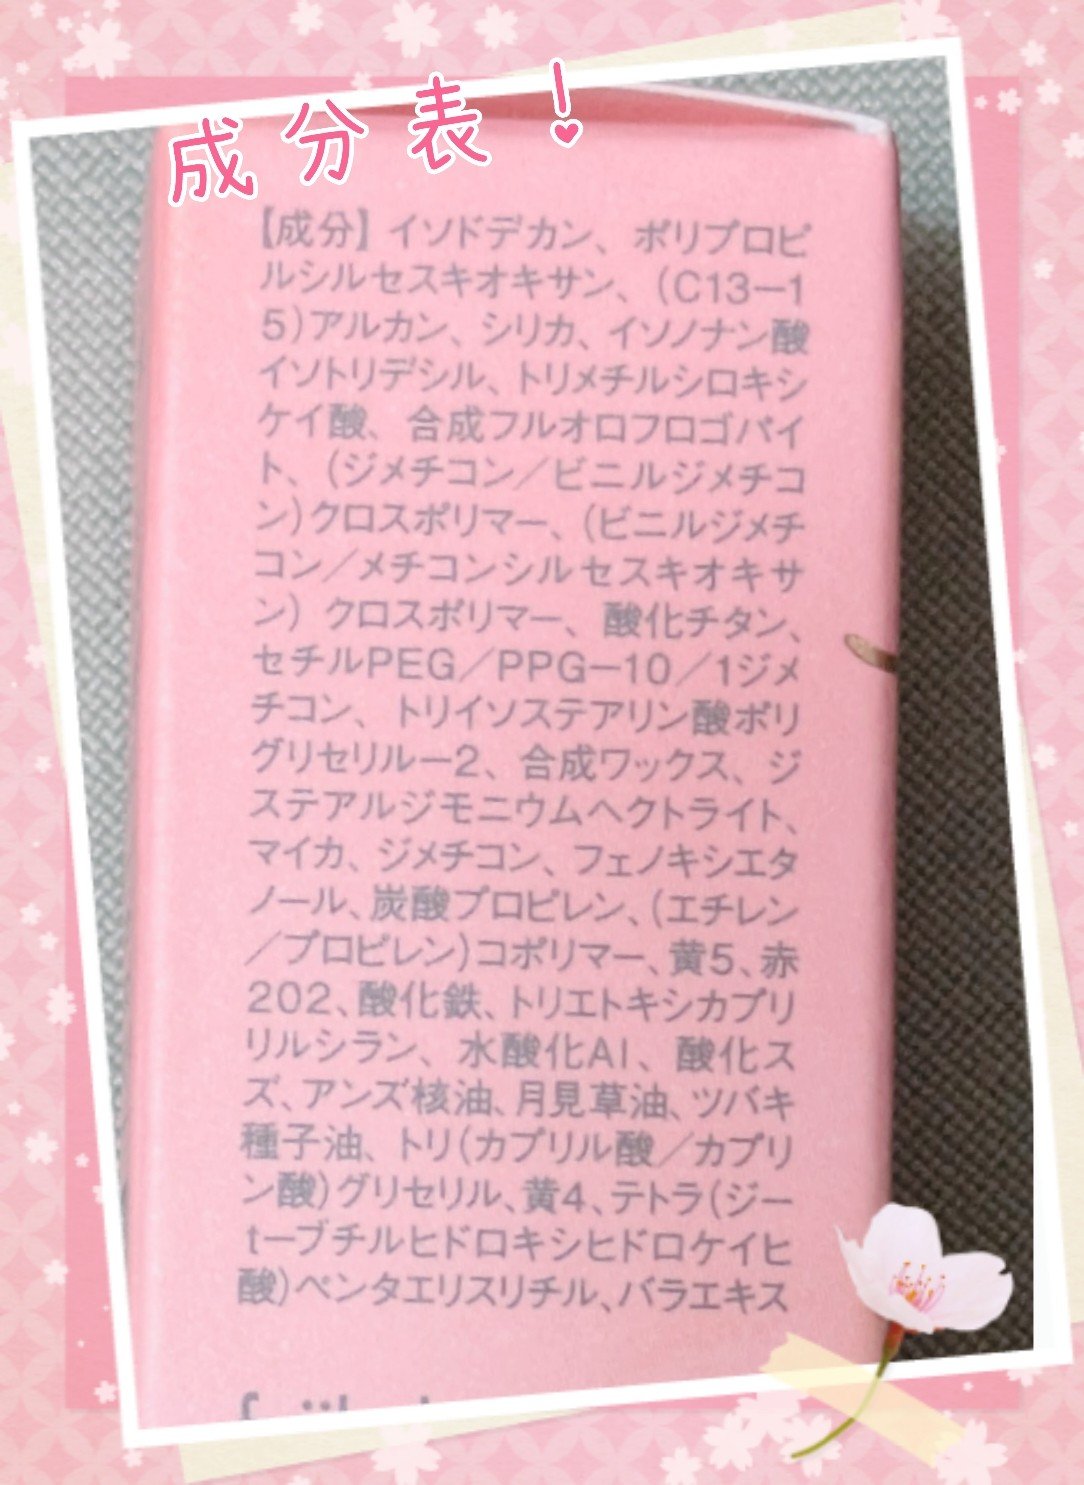 成分表!
【成分】イソドデカン、ポリプロピ
ルシルセスキオキサン、(C13ー1
5)アルカン、シリカ、イソノナン酸
イソトリデシル、トリメチルシロキシ
ケイ酸、合成フルオロフロゴパイ
ト、(ジメチコン／ビニルジメチコ
ン)クロスポリマー、(ビニルジメチ
コン／メチコンシルセスキオキサ
ン)クロスポリマー、酸化チタン、
セチルPEG／PPGー10／1ジメ
チコン、トリイソステアリン酸ポリ
グリセリルー2、合成ワックス、ジ
ステアルジモニウムヘクトライト、
マイカ、ジメチコン、フェノキシエタ
ノール、炭酸プロピレン、(エチレン
／プロピレン)コポリマー、黄5、赤
202、酸化鉄、トリエトキシカプリ
リルシラン、水酸化Al、酸化ス
ズ、アンズ核油、月見草油、ツバキ
種子油、トリ(カプリル酸／カプリ
ン酸)グリセリル、黄4、テトラ(ジー
tーブチルヒドロキシヒドロケイヒ
酸)ペンタエリスリチル、バラエキス